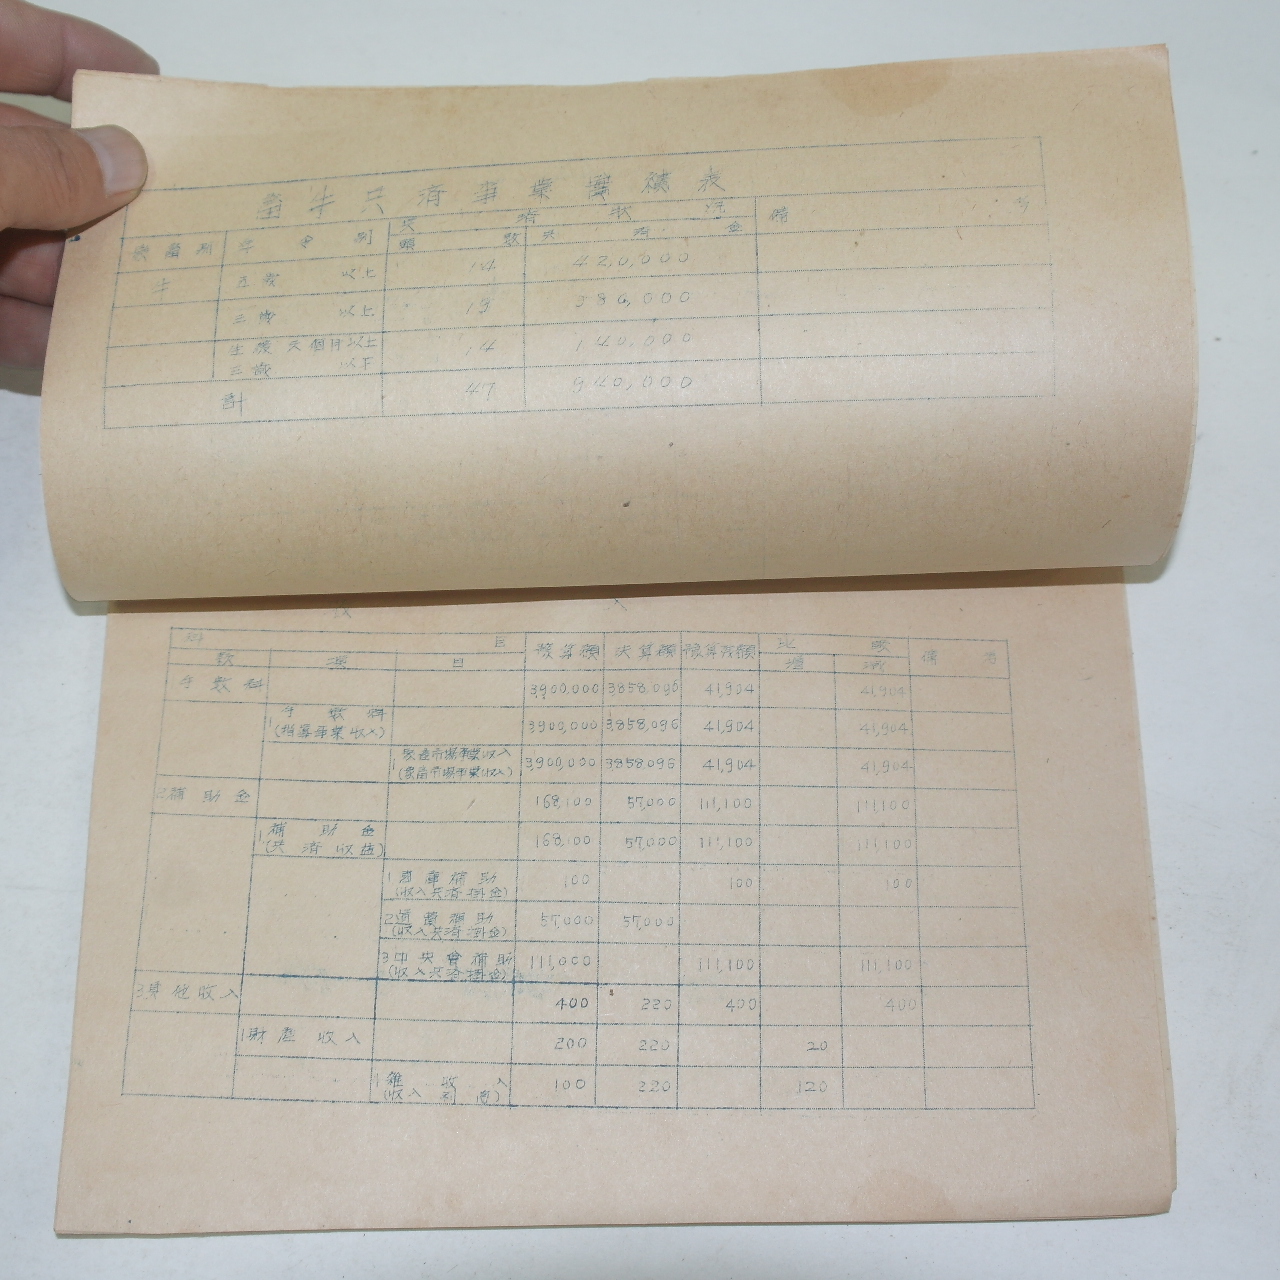 畜牛共済事業實積表
共済状況 備考
家畜別 年令別 頭数 共済金
牛 五歳以上 14 420,000
三歳以上 19 380,000
生後六個月以上 三歳以下 14 140,000
計 47 940,000
入
科目 予算額 決算額 予算残額 比較 備考
款 項 目 増 減
手数料 3,900,000 3,858,096 41,904 41,904
1 手数料 (指導事業收入) 3,900,000 3,858,096 41,904 41,904
1 家畜市場事業收入 3,900,000 3,858,096 41,904 41,904
2 補助金 168,100 57,000 111,100 111,100
1 補助金 (共済收益) 168,100 57,000 111,100 111,100
1 國庫補助 (收入共済掛金) 100 100 100
2 道費補助 (收入共済掛金) 57,000 57,000
3 中央會補助 (收入共済掛金) 111,000 111,100 111,100
3 其他收入 400 220 400 400
1 財産收入 200 220 20
1 雜收入 100 220 120